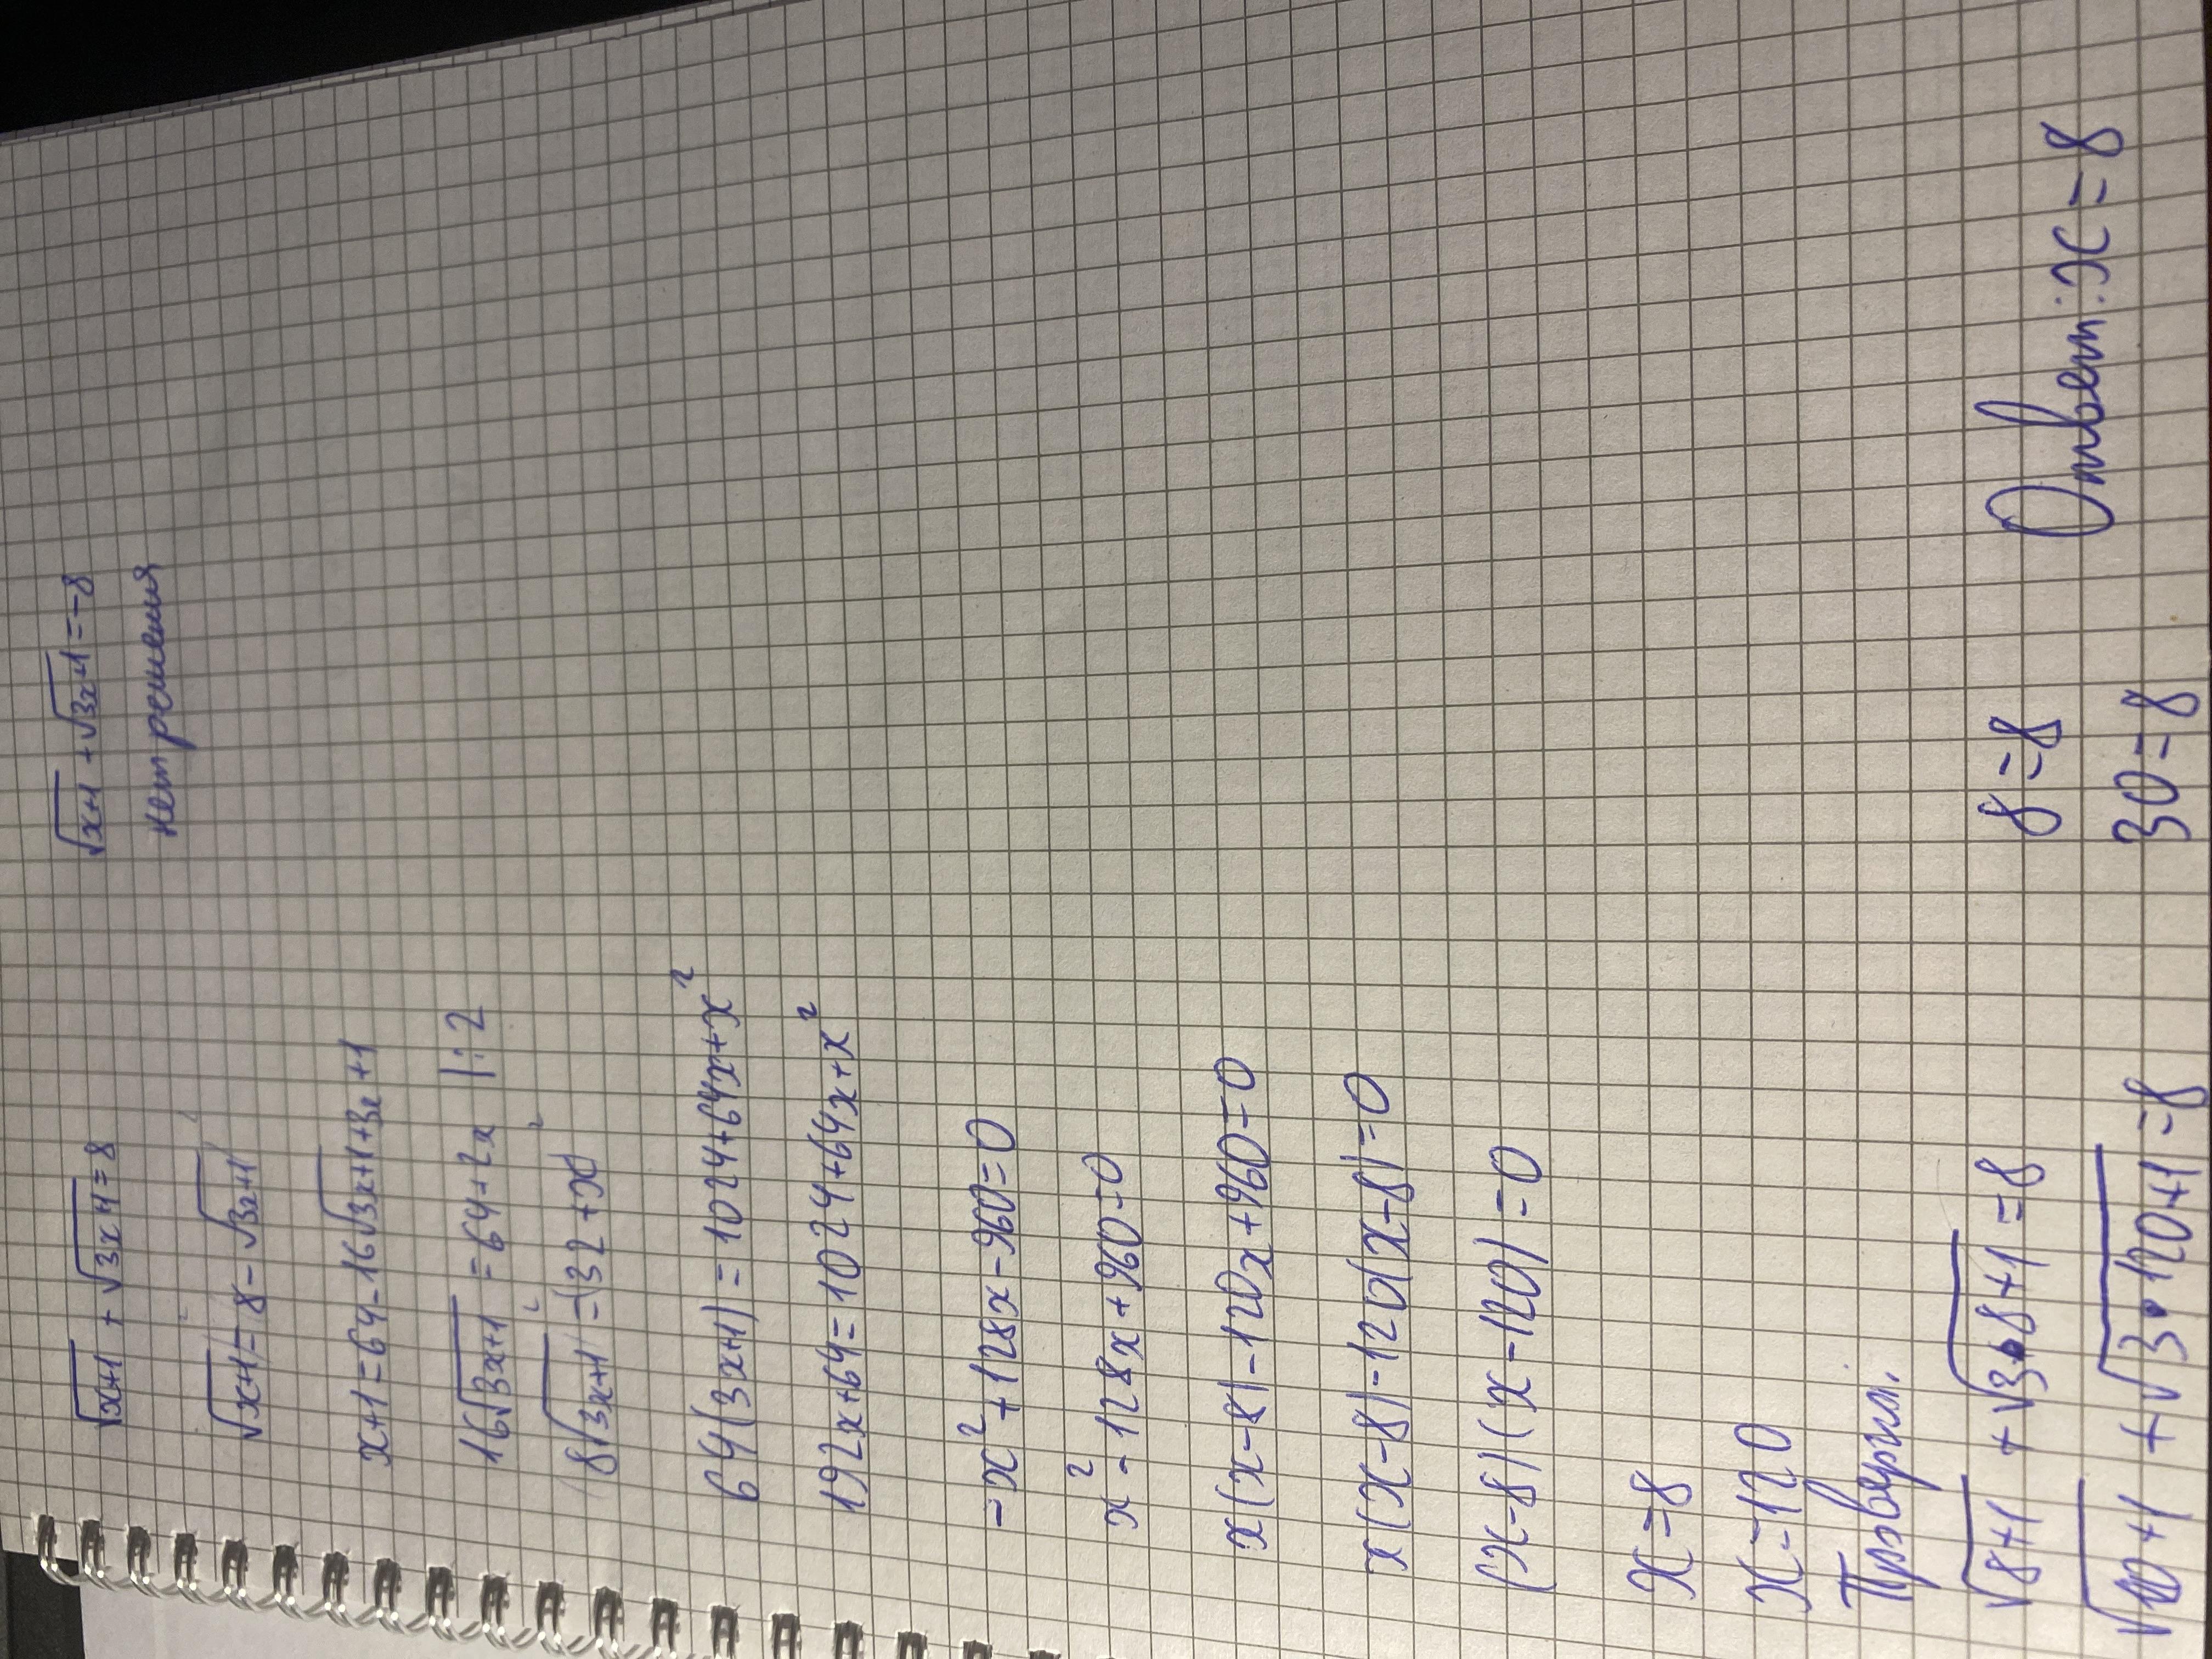 √(x+1) + √(3x+1) = 8
√(x+1) + √(3x+1) = -8
нет решения
√(x+1) = 8 - √(3x+1)
x+1 = 64 - 16√(3x+1) + 3x + 1
16√(3x+1) = 64 + 2x |:2
(8√(3x+1))² = (32 + x)²
64(3x+1) = 1024 + 64x + x²
192x + 64 = 1024 + 64x + x²
-x² + 128x - 960 = 0
x² - 128x + 960 = 0
x(x-8) - 120x + 960 = 0
x(x-8) - 120(x-8) = 0
(x-8)(x-120) = 0
x = 8
x = 120
Проверка.
√(8+1) + √(3•8+1) = 8 8 = 8
√(+1) + √(3•120+1) = 8 30 = 8
Ответ: x = 8